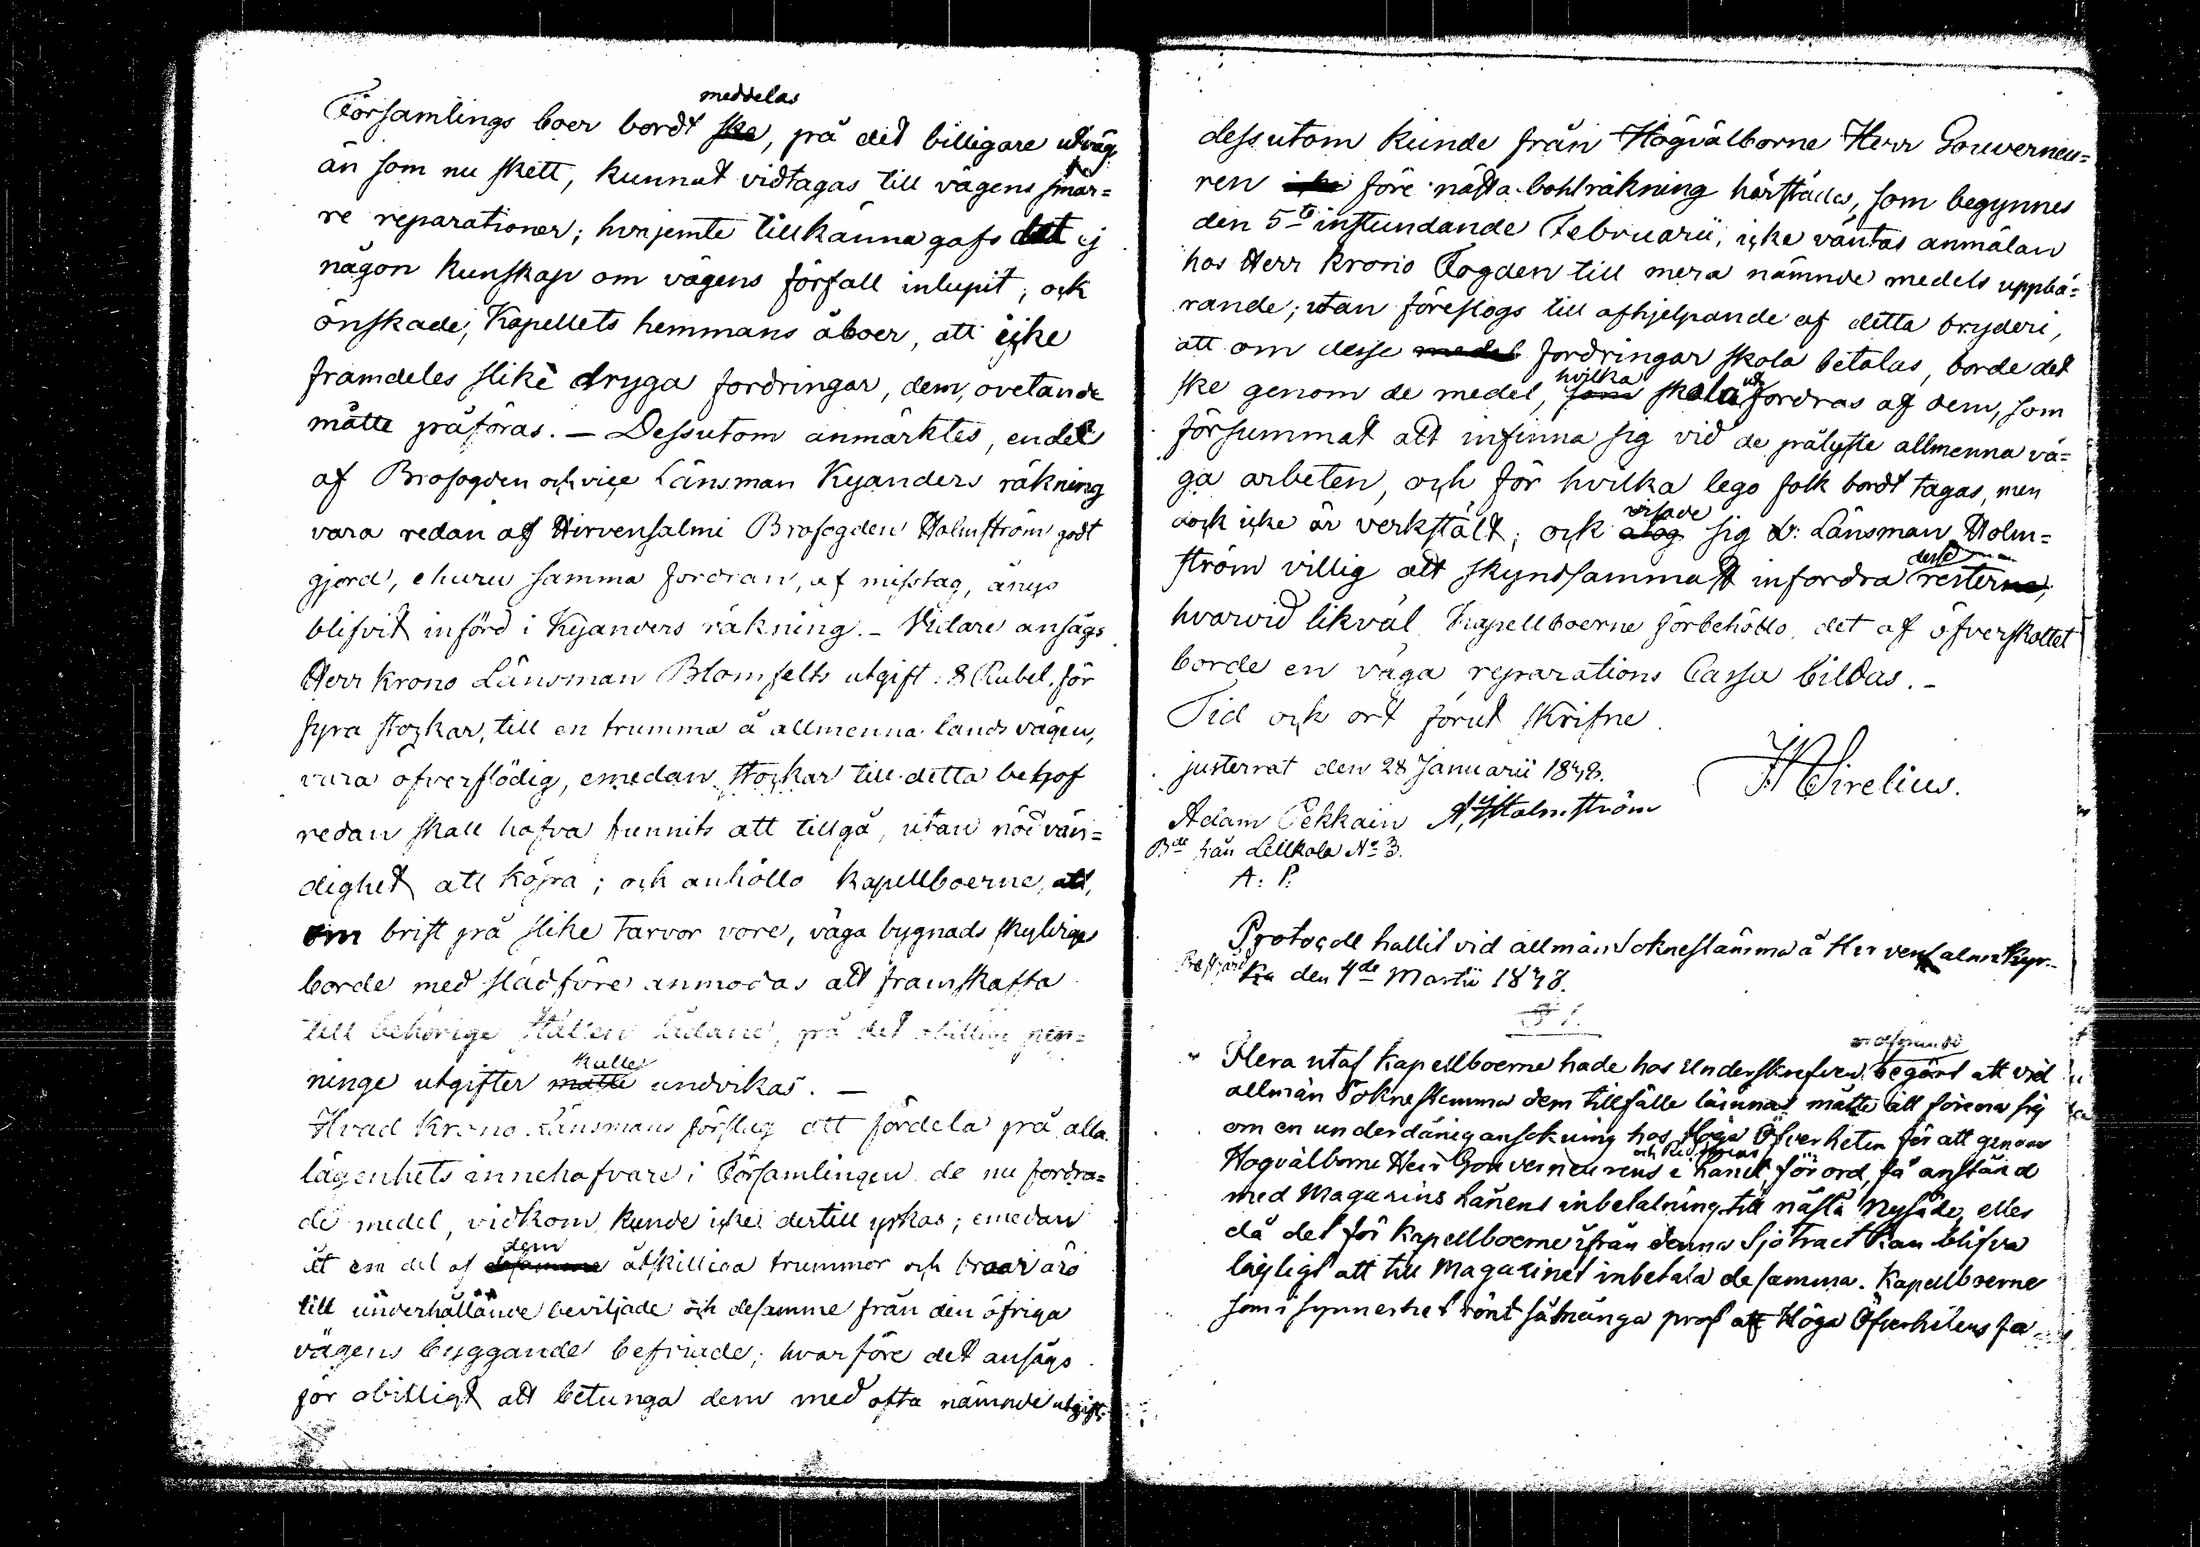 meddelas
Församlings boer bordt ske, på det billigare utväg
än som nu skett, kunnat vidtagas till vägens smär=
re reparationer; hvarjemte tillkänna gafs det ej
någon kunskap om vägens förfall inlupit; och
önskade, Kapellets hemmans åboer, att icke
framdeles slike dryga fordringar, dem, ovetande
måtte påföras. — Dessutom anmärktes, en del
af Brofogden och vice Länsman Kyanders räkning
vara redan af Hirvensalmi Brofogden Holmström godt
gjord, ehuru samma fordran, af misstag, änyo
blifvit införd i Kyanders räkning. – Vidare ansågs
Herr Krono Länsman Blomfelts utgift 8 Rubel, för
fyra stockar, till en trumma å allmenna landsvägen,
vara öfverflödig, emedan stockar till detta behof
redan skall hafva funnits att tillgå, utan nödvän=
dighet att köpa; och anhöllo kapellboerne, att,
om brist på slike tarvor vore, väga bygnads skyldige
borde med slädföre anmodas att framskaffa
till behörige ställen sådane, på det obillige pen=
skulle
ninge utgifter måtte undvikas. —
Hvad Krono Länsmans förslag att fördela på alla
lägenhets innehafvare i Församlingen de nu fordra=
de medel, vidkom, kunde icke dertill yrkas; emedan
dem
åt en del af desamme åtskilliga trummor och broar äro
till underhållande beviljade och desamme från den öfriga
vägens byggande befriade; hvarföre det ansågs
för obilligt att betunga dem med ofta nämnde utgift;
dessutom kunde från Högvälborne Herr Gouverneu=
ren icke före nästa bohlräkning härstädes, som begynnes
den 5te instundande Februarii, icke väntas anmälan
hos Herr Krono Fogden till mera nämnde medels uppbä=
rande; utan föreslogs till afhjelpande af detta bryderi,
att om desse medel fordringar skola betalas, borde det
hvilka ut
ske genom de medel, som skola fordras af dem, som
försummat att infinna sig vid de pålyste allmenna vä=
ga arbeten, och för hvilka lego folk bordt tagas, men
visade
dock icke är verkstäldt; och åtog sig v: Länsman Holm=
desse
ström villig att skyndsammast infordra resterne,
hvarvid likväl Kapellboerne förbehöllo, det af öfverskottet
borde en väga reparations Cassa bildas. –
Tid och ort förut skrifne.
justerrat den 28 Januarii 1848.
Sirelius.
Adam Pekkain Holmström
Bde från Lellkola No 3.
A: P:
Protocoll hållit vid allmän Soknestämma å Hirvensalmi Kyr-
ka den 4de Martii 1848.
§ 1.
Flera utaf kapellboerne hade hos Underskrefven begärt att vid
allmän Soknestemma dem tillfälle lämnas måtte att förena sig
om en underdånig ansökning hos Höga Öfverheten för att genom
Högvälborne Herr Gouverneurens i Länet förord, få anstånd
med Magazins Lånens inbetalning till nästa Nysäde, eller
då det för Kapellboerne ifrån denna Sjötract kan blifva
läglígt att till Magazinet inbetala desamma. Kapellboerne
som i synnerhet rönt så många prof af Höga Öfverhetens fa-